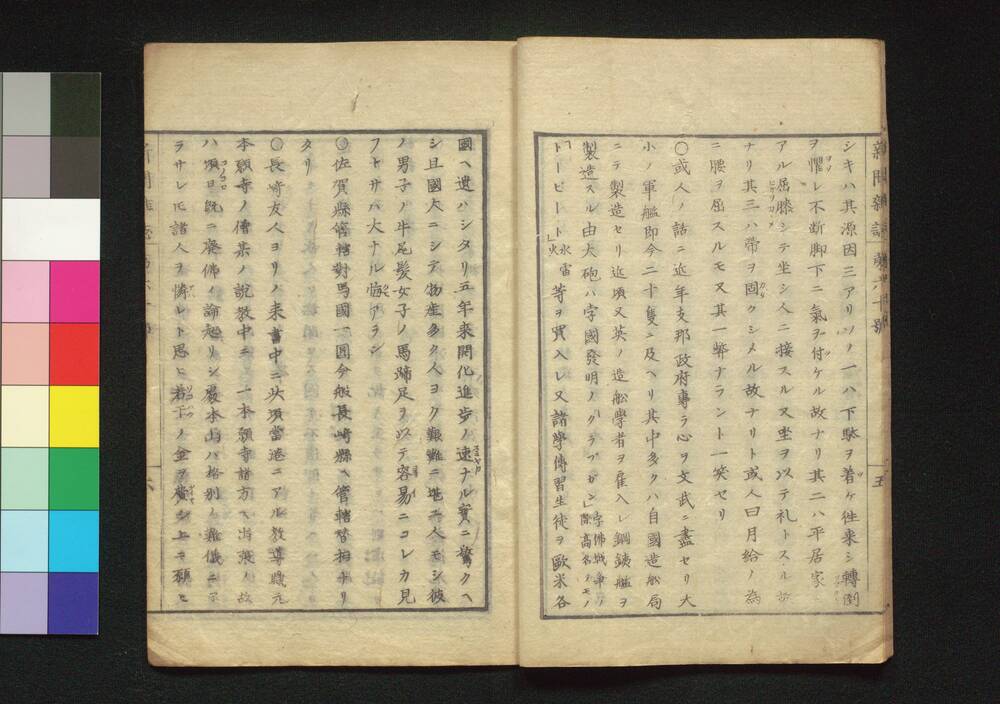 新聞雜誌 第六十號 五
シキハ其源因三アリソノ一ハ下駄ヲ着ケ徃来シ轉倒
ヲ懼レ不断脚下ニ氣ヲ付ケル故ナリ其二ハ平居家
アル屈膝シテ坐シ人ニ接スル又坐ヲ以テ礼トスル故
ナリ其三ハ帶ヲ固クシメル故ナリト或人曰月給ノ為
ニ腰ヲ屈スルモ又其一弊ナラント一笑セリ
〇或人ノ話ニ近年支那政府專ラ心ヲ文武ニ盡セリ大
小ノ軍艦即今二十隻ニ及ヘリ其中多クハ自國造舩局
ニテ製造セリ近頃又英ノ造舩學者ヲ雇入レ鋼鐵艦ヲ
製造スル由大砲ハ孛國發明ノクラプガン 孛佛戰爭ノ際高名ナモノ
トーピートー 水雷火 等ヲ買入レ又諸學傳習生徒ヲ歐米各
國ヘ遣ハシタリ五年来開化進歩ノ速ナル實ニ驚クヘ
シ且國大ニシテ物産多ク人ヨク艱難ニ堪ニ人モシ彼
ノ男子ノ牛尾髪女子ノ馬蹄足ヲ以テ容易ニコレカ見
フヤサバ大ナル悔アラン
〇佐賀縣管轄對馬國一圓今般長崎縣ヘ管轄替相ナリ
タリ
〇長崎友人ヨリノ来書中ニ此項當港ニアル教導職元
本願寺ノ僧某ノ説教中ニ一本願寺諸方ヘ出張ノ故
ハ頃日既ニ廢佛ノ論起リシ處本山ハ格別ノ
ラサレ𪜈諸人ヲ憐レト思ヒ若干ノ金ヲ費シ上モ願ヒ